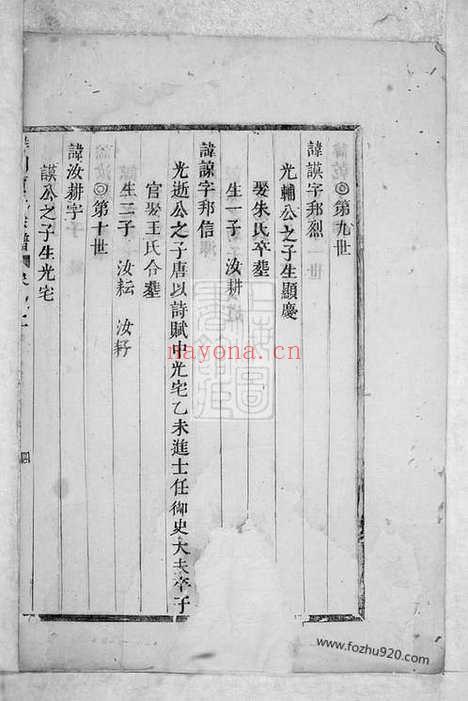 ◎第九世
諱謨字邦烈
光輔公之子生顯慶
娶朱氏卒葬
生一子 汝耕
諱諒字邦信
光遜公之子唐以詩賦中光宅乙未進士任御史大夫卒于
官娶王氏合葬
生二子 汝耘 汝耔
◎第十世
諱汝耕字
謨公之子生光宅
nayona.cn
www.fozhu920.com